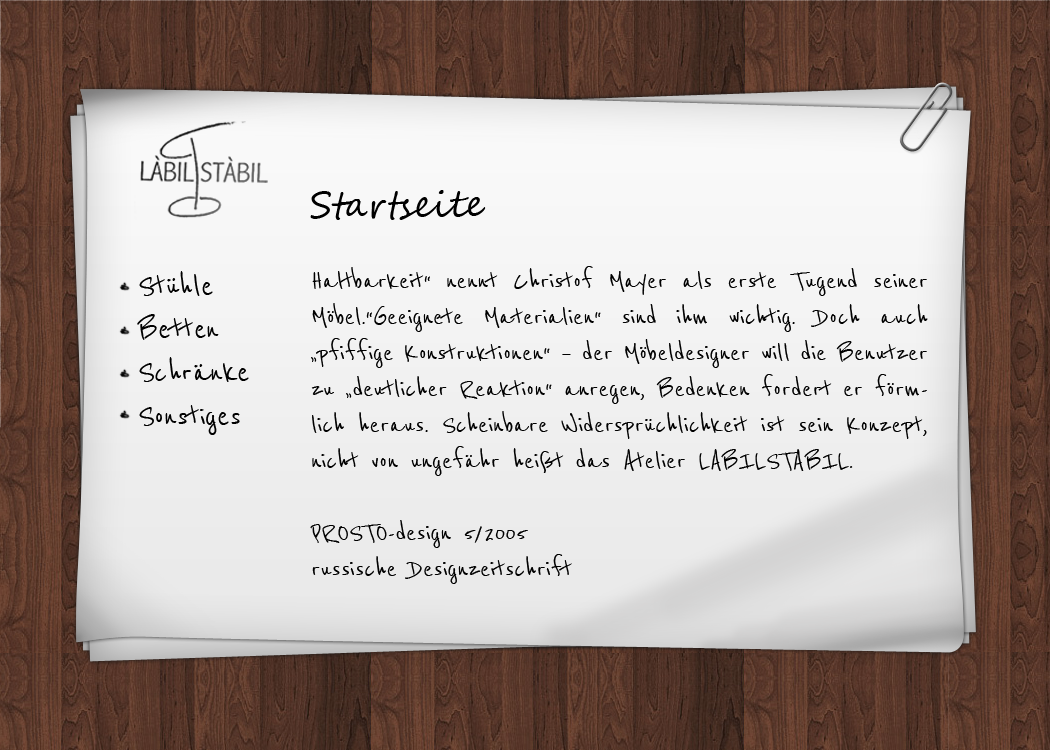 LÀBILSTÀBIL
Startseite
Stühle
Betten
Schränke
Sonstiges
Haltbarkeit“ nennt Christof Mayer als erste Tugend seiner
Möbel.“Geeignete Materialien“ sind ihm wichtig. Doch auch
„pfiffige Konstruktionen“ – der Möbeldesigner will die Benutzer
zu „deutlicher Reaktion“ anregen, Bedenken fordert er förm-
lich heraus. Scheinbare Widersprüchlichkeit ist sein Konzept,
nicht von ungefähr heißt das Atelier LABILSTABIL.
PROSTO-design 5/2005
russische Designzeitschrift